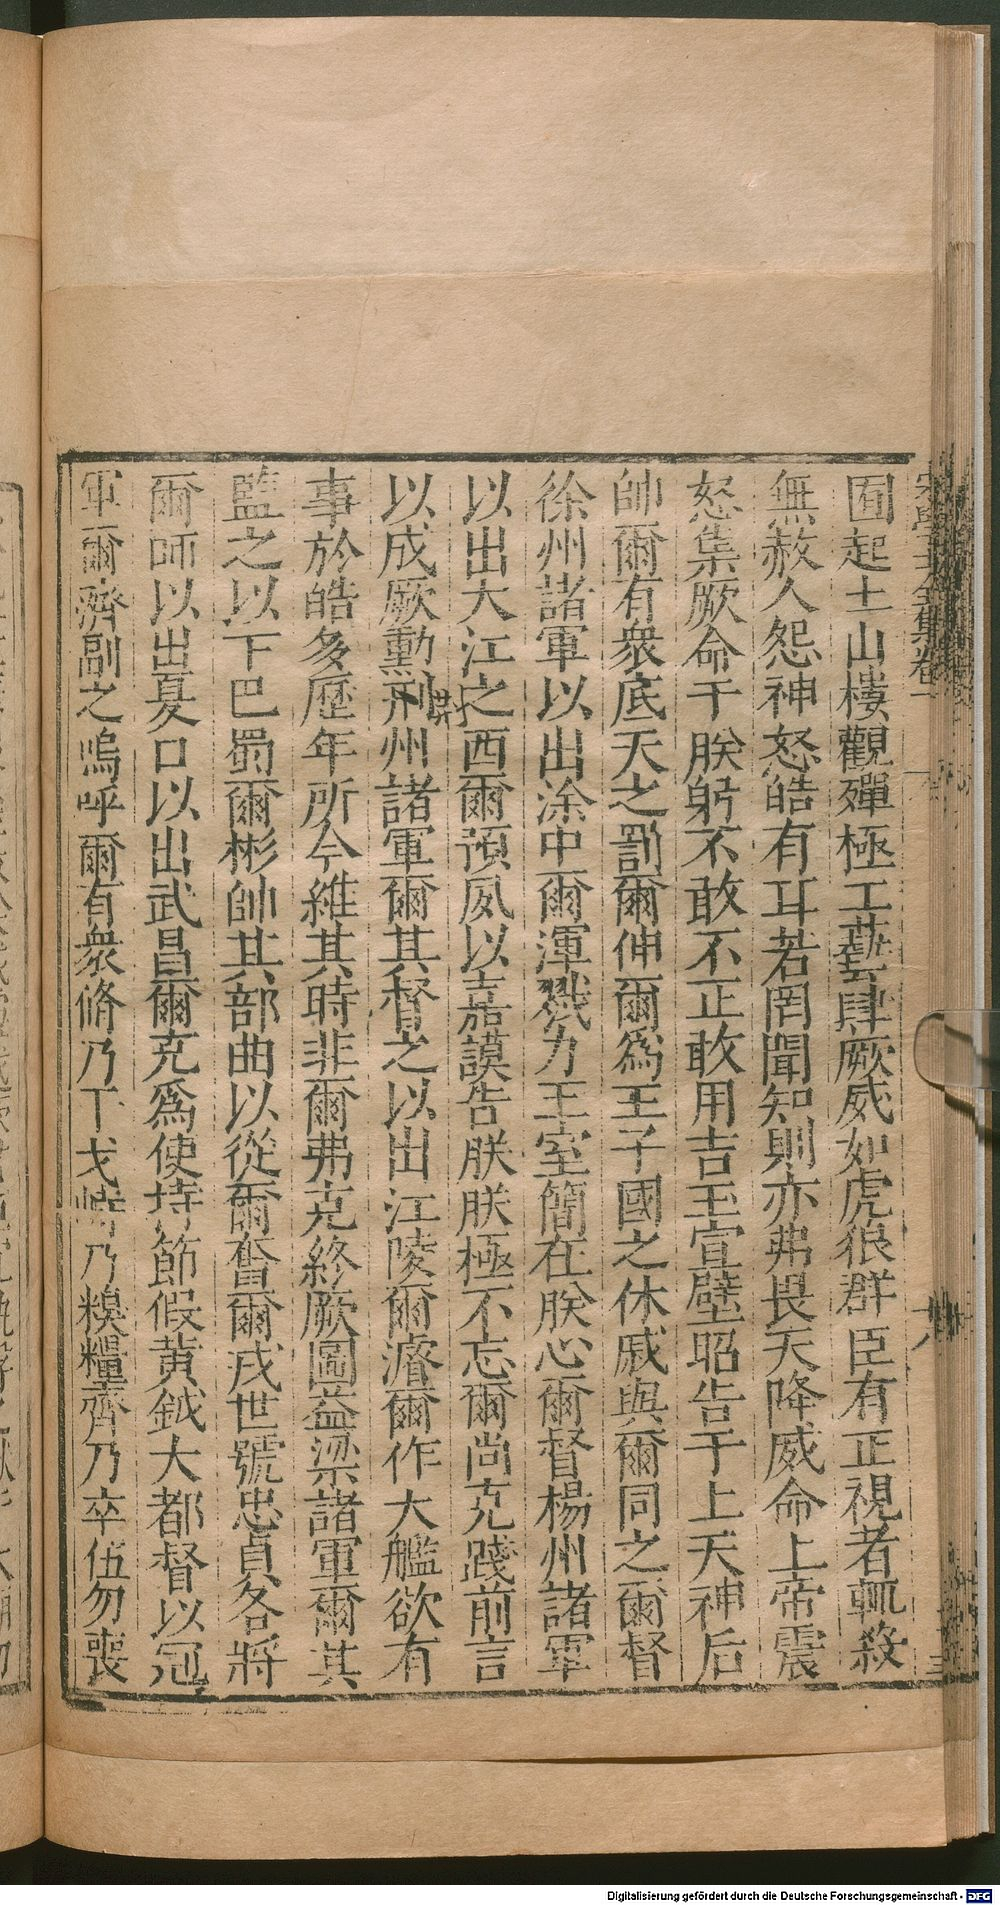 囿起土山樓觀殫極工藝肆厥威如虎狼群臣有正視者輒殺
無赦人怨神怒皓有耳若罔聞知則亦弗畏天降威命上帝震
怒集厥命于朕躬不敢不正敢用吉玉宣璧昭告于上天神后
帥爾有衆底天之罰爾伷爾為王子國之休戚與爾同之爾督
徐州諸軍以出涂中爾渾戮力王室簡在朕心爾督楊州諸軍
以出大江之西爾預夙以嘉謨告朕朕極不忘爾尚克踐前言
以成厥勳荆州諸軍爾其督之以出江陵爾濬爾作大艦欲有
事於皓多歷年所今維其時非爾弗克終厥圖益梁諸軍爾其
監之以下巴蜀爾彬帥其部曲以從爾奮爾戎世號忠貞各將
爾師以出夏口以出武昌爾充為使持節假黃鉞大都督以冠
軍爾濟副之嗚呼爾有衆脩乃干戈峙乃糗糧齊乃卒伍勿喪
Digitalisierung gefördert durch die Deutsche Forschungsgemeinschaft - DFG